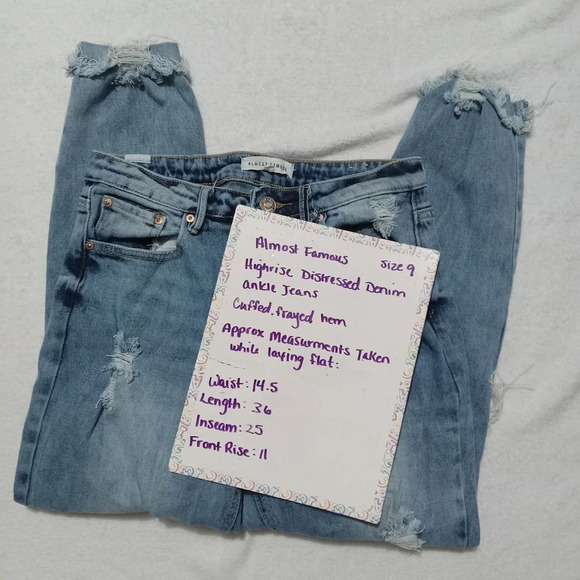 ALMOST FAMOUS
Almost Famous Size 9
Highrise Distressed Denim
ankle Jeans
Cuffed, frayed hem
Approx Measurments Taken
while laying flat:
Waist: 14.5
Length: 36
Inseam: 25
Front Rise: 11